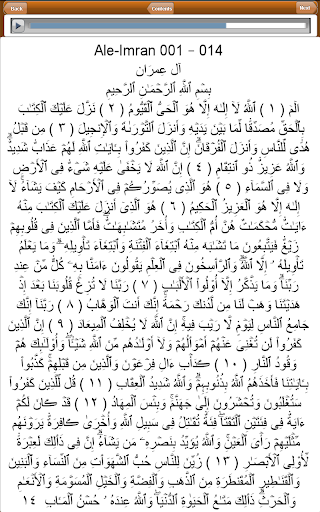 Back
Contents
Next
Ale-Imran 001 - 014
آل عِمرَان
بِسْمِ ٱللَّهِ ٱلرَّحْمَـٰنِ ٱلرَّحِيمِ
الٓمٓ ( ١ ) ٱللَّهُ لَآ إِلَـٰهَ إِلَّا هُوَ ٱلْحَىُّ ٱلْقَيُّومُ ( ٢ ) نَزَّلَ عَلَيْكَ ٱلْكِتَـٰبَ
بِٱلْحَقِّ مُصَدِّقًا لِّمَا بَيْنَ يَدَيْهِ وَأَنزَلَ ٱلتَّوْرَىٰةَ وَٱلْإِنجِيلَ ( ٣ ) مِن قَبْلُ
هُدًى لِّلنَّاسِ وَأَنزَلَ ٱلْفُرْقَانَ ۗ إِنَّ ٱلَّذِينَ كَفَرُوا۟ بِـَٔايَـٰتِ ٱللَّهِ لَهُمْ عَذَابٌ شَدِيدٌ ۗ
وَٱللَّهُ عَزِيزٌ ذُو ٱنتِقَامٍ ( ٤ ) إِنَّ ٱللَّهَ لَا يَخْفَىٰ عَلَيْهِ شَىْءٌ فِى ٱلْأَرْضِ
وَلَا فِى ٱلسَّمَآءِ ( ٥ ) هُوَ ٱلَّذِى يُصَوِّرُكُمْ فِى ٱلْأَرْحَامِ كَيْفَ يَشَآءُ ۚ لَآ
إِلَـٰهَ إِلَّا هُوَ ٱلْعَزِيزُ ٱلْحَكِيمُ ( ٦ ) هُوَ ٱلَّذِىٓ أَنزَلَ عَلَيْكَ ٱلْكِتَـٰبَ مِنْهُ
ءَايَـٰتٌ مُّحْكَمَـٰتٌ هُنَّ أُمُّ ٱلْكِتَـٰبِ وَأُخَرُ مُتَشَـٰبِهَـٰتٌ ۖ فَأَمَّا ٱلَّذِينَ فِى قُلُوبِهِمْ
زَيْغٌ فَيَتَّبِعُونَ مَا تَشَـٰبَهَ مِنْهُ ٱبْتِغَآءَ ٱلْفِتْنَةِ وَٱبْتِغَآءَ تَأْوِيلِهِۦ ۗ وَمَا يَعْلَمُ
تَأْوِيلَهُۥٓ إِلَّا ٱللَّهُ ۗ وَٱلرَّٰسِخُونَ فِى ٱلْعِلْمِ يَقُولُونَ ءَامَنَّا بِهِۦ كُلٌّ مِّنْ عِندِ
رَبِّنَا ۗ وَمَا يَذَّكَّرُ إِلَّآ أُو۟لُوا۟ ٱلْأَلْبَـٰبِ ( ٧ ) رَبَّنَا لَا تُزِغْ قُلُوبَنَا بَعْدَ إِذْ
هَدَيْتَنَا وَهَبْ لَنَا مِن لَّدُنكَ رَحْمَةً ۚ إِنَّكَ أَنتَ ٱلْوَهَّابُ ( ٨ ) رَبَّنَآ إِنَّكَ
جَامِعُ ٱلنَّاسِ لِيَوْمٍ لَّا رَيْبَ فِيهِ ۚ إِنَّ ٱللَّهَ لَا يُخْلِفُ ٱلْمِيعَادَ ( ٩ ) إِنَّ ٱلَّذِينَ
كَفَرُوا۟ لَن تُغْنِىَ عَنْهُمْ أَمْوَٰلُهُمْ وَلَآ أَوْلَـٰدُهُم مِّنَ ٱللَّهِ شَيْـًٔا ۖ وَأُو۟لَـٰٓئِكَ هُمْ
وَقُودُ ٱلنَّارِ ( ١٠ ) كَدَأْبِ ءَالِ فِرْعَوْنَ وَٱلَّذِينَ مِن قَبْلِهِمْ ۚ كَذَّبُوا۟
بِـَٔايَـٰتِنَا فَأَخَذَهُمُ ٱللَّهُ بِذُنُوبِهِمْ ۗ وَٱللَّهُ شَدِيدُ ٱلْعِقَابِ ( ١١ ) قُل لِّلَّذِينَ كَفَرُوا۟
سَتُغْلَبُونَ وَتُحْشَرُونَ إِلَىٰ جَهَنَّمَ ۚ وَبِئْسَ ٱلْمِهَادُ ( ١٢ ) قَدْ كَانَ لَكُمْ
ءَايَةٌ فِى فِئَتَيْنِ ٱلْتَقَتَا ۖ فِئَةٌ تُقَـٰتِلُ فِى سَبِيلِ ٱللَّهِ وَأُخْرَىٰ كَافِرَةٌ يَرَوْنَهُم
مِّثْلَيْهِمْ رَأْىَ ٱلْعَيْنِ ۚ وَٱللَّهُ يُؤَيِّدُ بِنَصْرِهِۦ مَن يَشَآءُ ۗ إِنَّ فِى ذَٰلِكَ لَعِبْرَةً
لِّأُو۟لِى ٱلْأَبْصَـٰرِ ( ١٣ ) زُيِّنَ لِلنَّاسِ حُبُّ ٱلشَّهَوَٰتِ مِنَ ٱلنِّسَآءِ وَٱلْبَنِينَ
وَٱلْقَنَـٰطِيرِ ٱلْمُقَنطَرَةِ مِنَ ٱلذَّهَبِ وَٱلْفِضَّةِ وَٱلْخَيْلِ ٱلْمُسَوَّمَةِ وَٱلْأَنْعَـٰمِ
وَٱلْحَرْثِ ۗ ذَٰلِكَ مَتَـٰعُ ٱلْحَيَوٰةِ ٱلدُّنْيَا ۖ وَٱللَّهُ عِندَهُۥ حُسْنُ ٱلْمَـَٔابِ ١٤